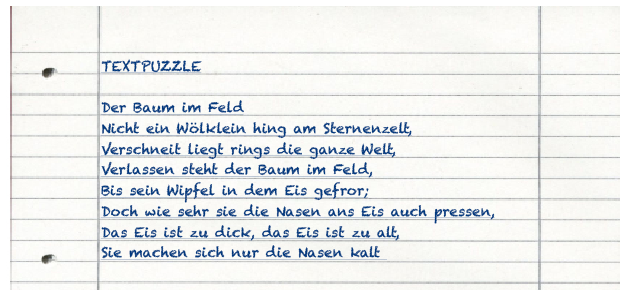 TEXTPUZZLE
Der Baum im Feld
Nicht ein Wölklein hing am Sternenzelt,
Verschneit liegt rings die ganze Welt,
Verlassen steht der Baum im Feld,
Bis sein Wipfel in dem Eis gefror;
Doch wie sehr sie die Nasen ans Eis auch pressen,
Das Eis ist zu dick, das Eis ist zu alt,
Sie machen sich nur die Nasen kalt